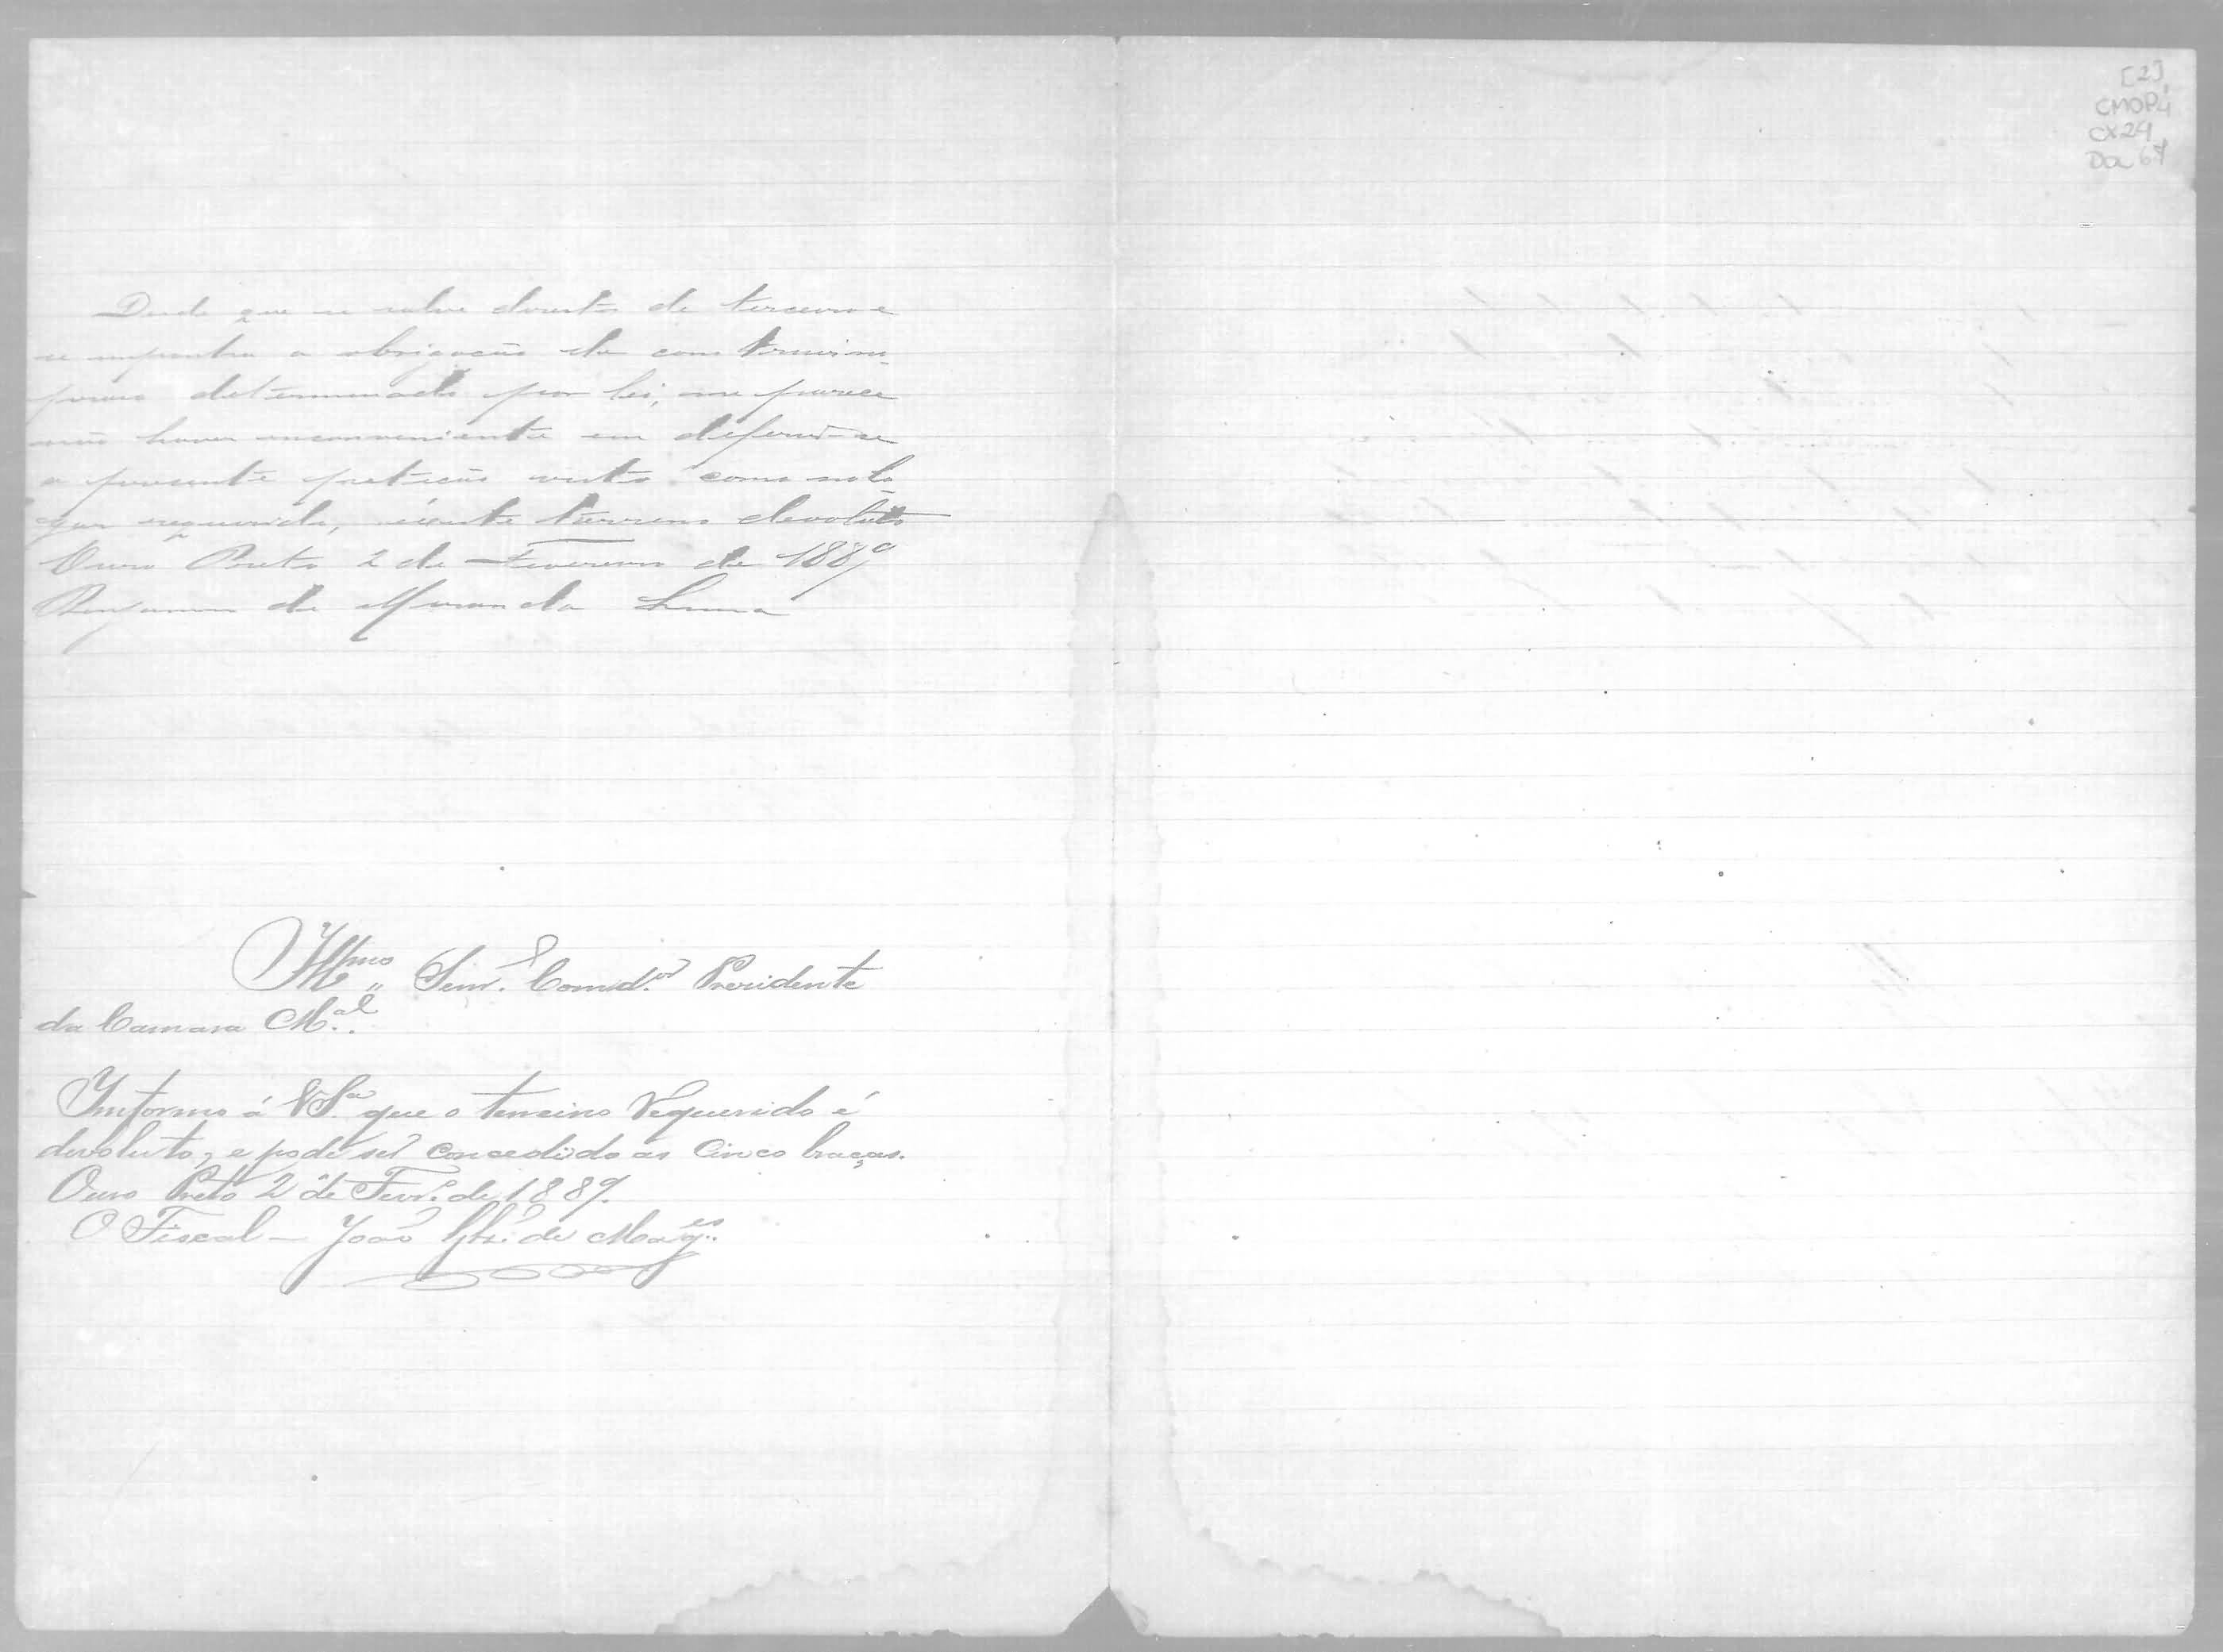 Desde que se salve direito de terceiro e
se imponha a obrigação da
determinado por lei, me parece
não haver inconveniente em deferir-se
a presente petição visto como no lo-
gar requerido, existe terreno devoluto
Ouro Preto 2 de Fevereiro de 1889
Benjamin de Miranda Lima
Illmo Senr. Comdor Presidente
da Camara Mal.
Informo á VSa que o terreino requerido é
devoluto, e pode ser concedido as cinco braças.
Ouro Preto 2 de Fevro de 1889.
O Fiscal — João de Mages
[2]
CMOP
CX24
Doc 67